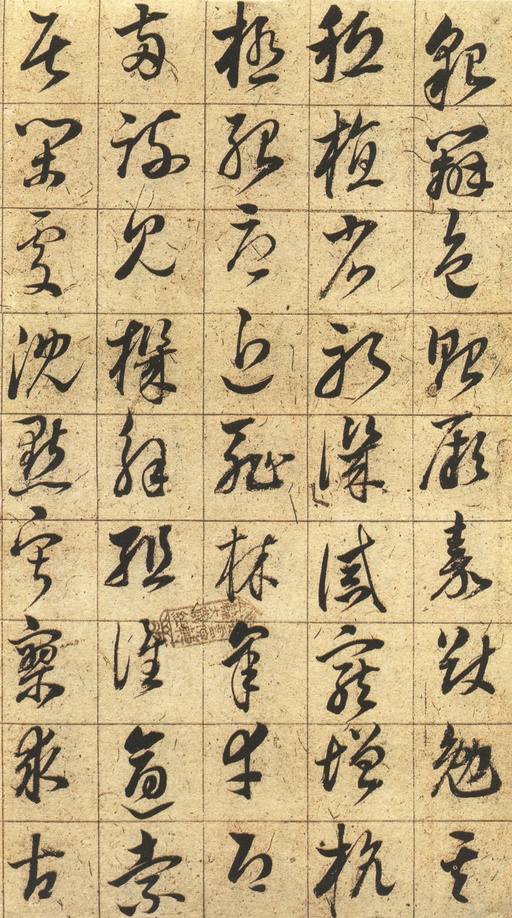 貌辨色貽厥嘉猷勉其
祗植省躬譏誡寵增抗
極殆辱近恥林皋幸即
兩疏見機解組誰逼索
居閑處沈默寂寥求古